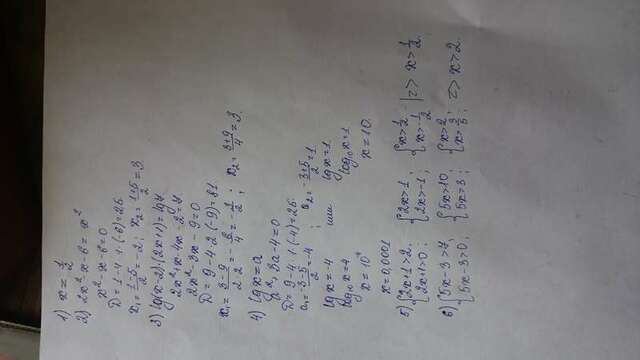 1) x = 1/2
2) 2x² - x - 6 = x²
x² - x - 6 = 0
D = 1 - 4 · 1 · (-6) = 25
x₁ = (1-5)/2 = -2; x₂ = (1+5)/2 = 3.
3) lg(x-2)·(2x+1) = lg7
2x² + x - 4x - 2 = 7
2x² - 3x - 9 = 0
D = 9 - 4 · 2 · (-9) = 81
x₁ = (3-9)/(2·2) = -6/4 = -1/2; x₂ = (3+9)/4 = 3.
4) lg x = a
a² + 3a - 4 = 0
D = 9 - 4 · 1 · (-4) = 25
a₁ = (-3-5)/2 = -4; a₂ = (-3+5)/2 = 1
lg x = -4 или lg x = 1
log₁₀ x = 4 log₁₀ x = 1
x = 10⁴ x = 10.
x = 0,0001
5) {2x+1>2, 2x+1>0; {2x>1, 2x>-1; {x>1/2, x>-1/2 |=> x>1/2.
6) {5x-3>7, 5x-3>0; {5x>10, 5x>3; {x>2, x>3/5; => x>2.